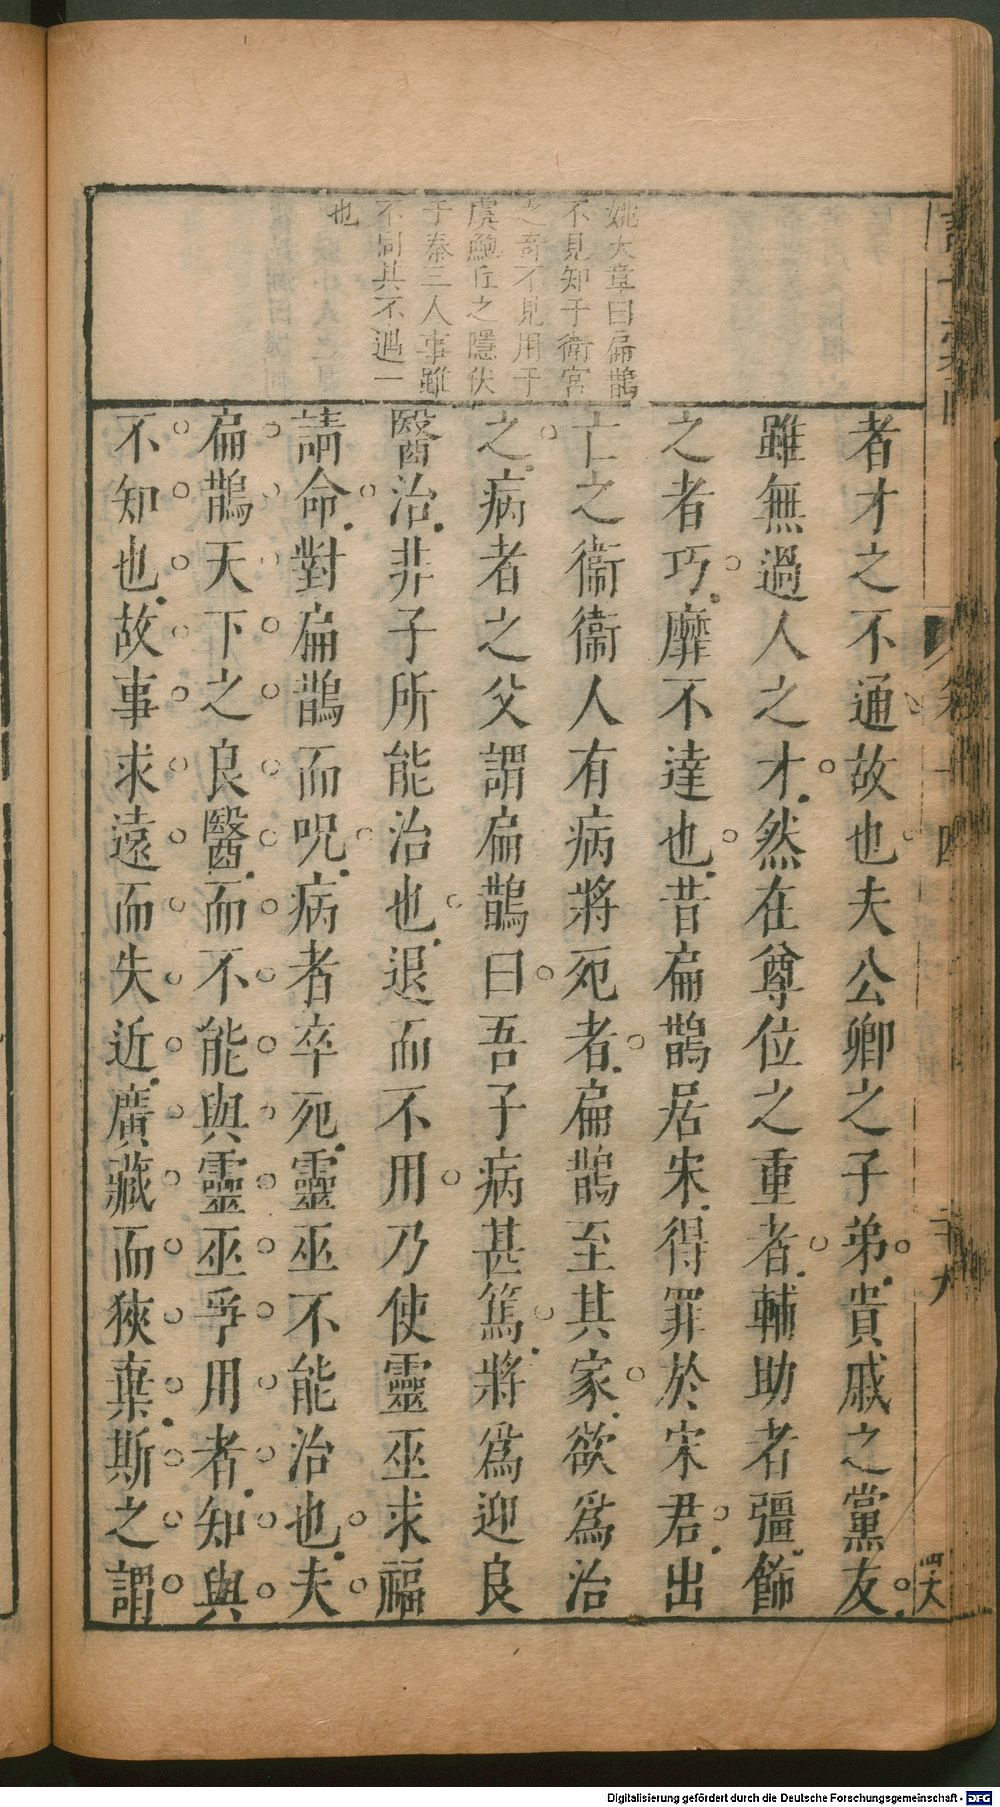 姚大章曰扁鵲
不見知于衛宮
之奇不見用于
虞鮑丘之隱伏
于秦三人事雖
不同其不遇一
也
者才之不通故也夫公卿之子弟貴戚之黨友
雖無過人之才然在尊位之重者輔助者彊飾
之者巧靡不達也昔扁鵲居宋得罪於宋君出
亡之衞衞人有病將死者扁鵲至其家欲爲治
之病者之父謂扁鵲曰吾子病甚篤將爲迎良
醫治非子所能治也退而不用乃使靈巫求福
請命對扁鵲而呪病者卒死靈巫不能治也夫
扁鵲天下之良醫而不能與靈巫爭用者知與
不知也故事求遠而失近廣藏而狹棄斯之謂
卷十四
二十九
Digitalisierung gefördert durch die Deutsche Forschungsgemeinschaft - DFG